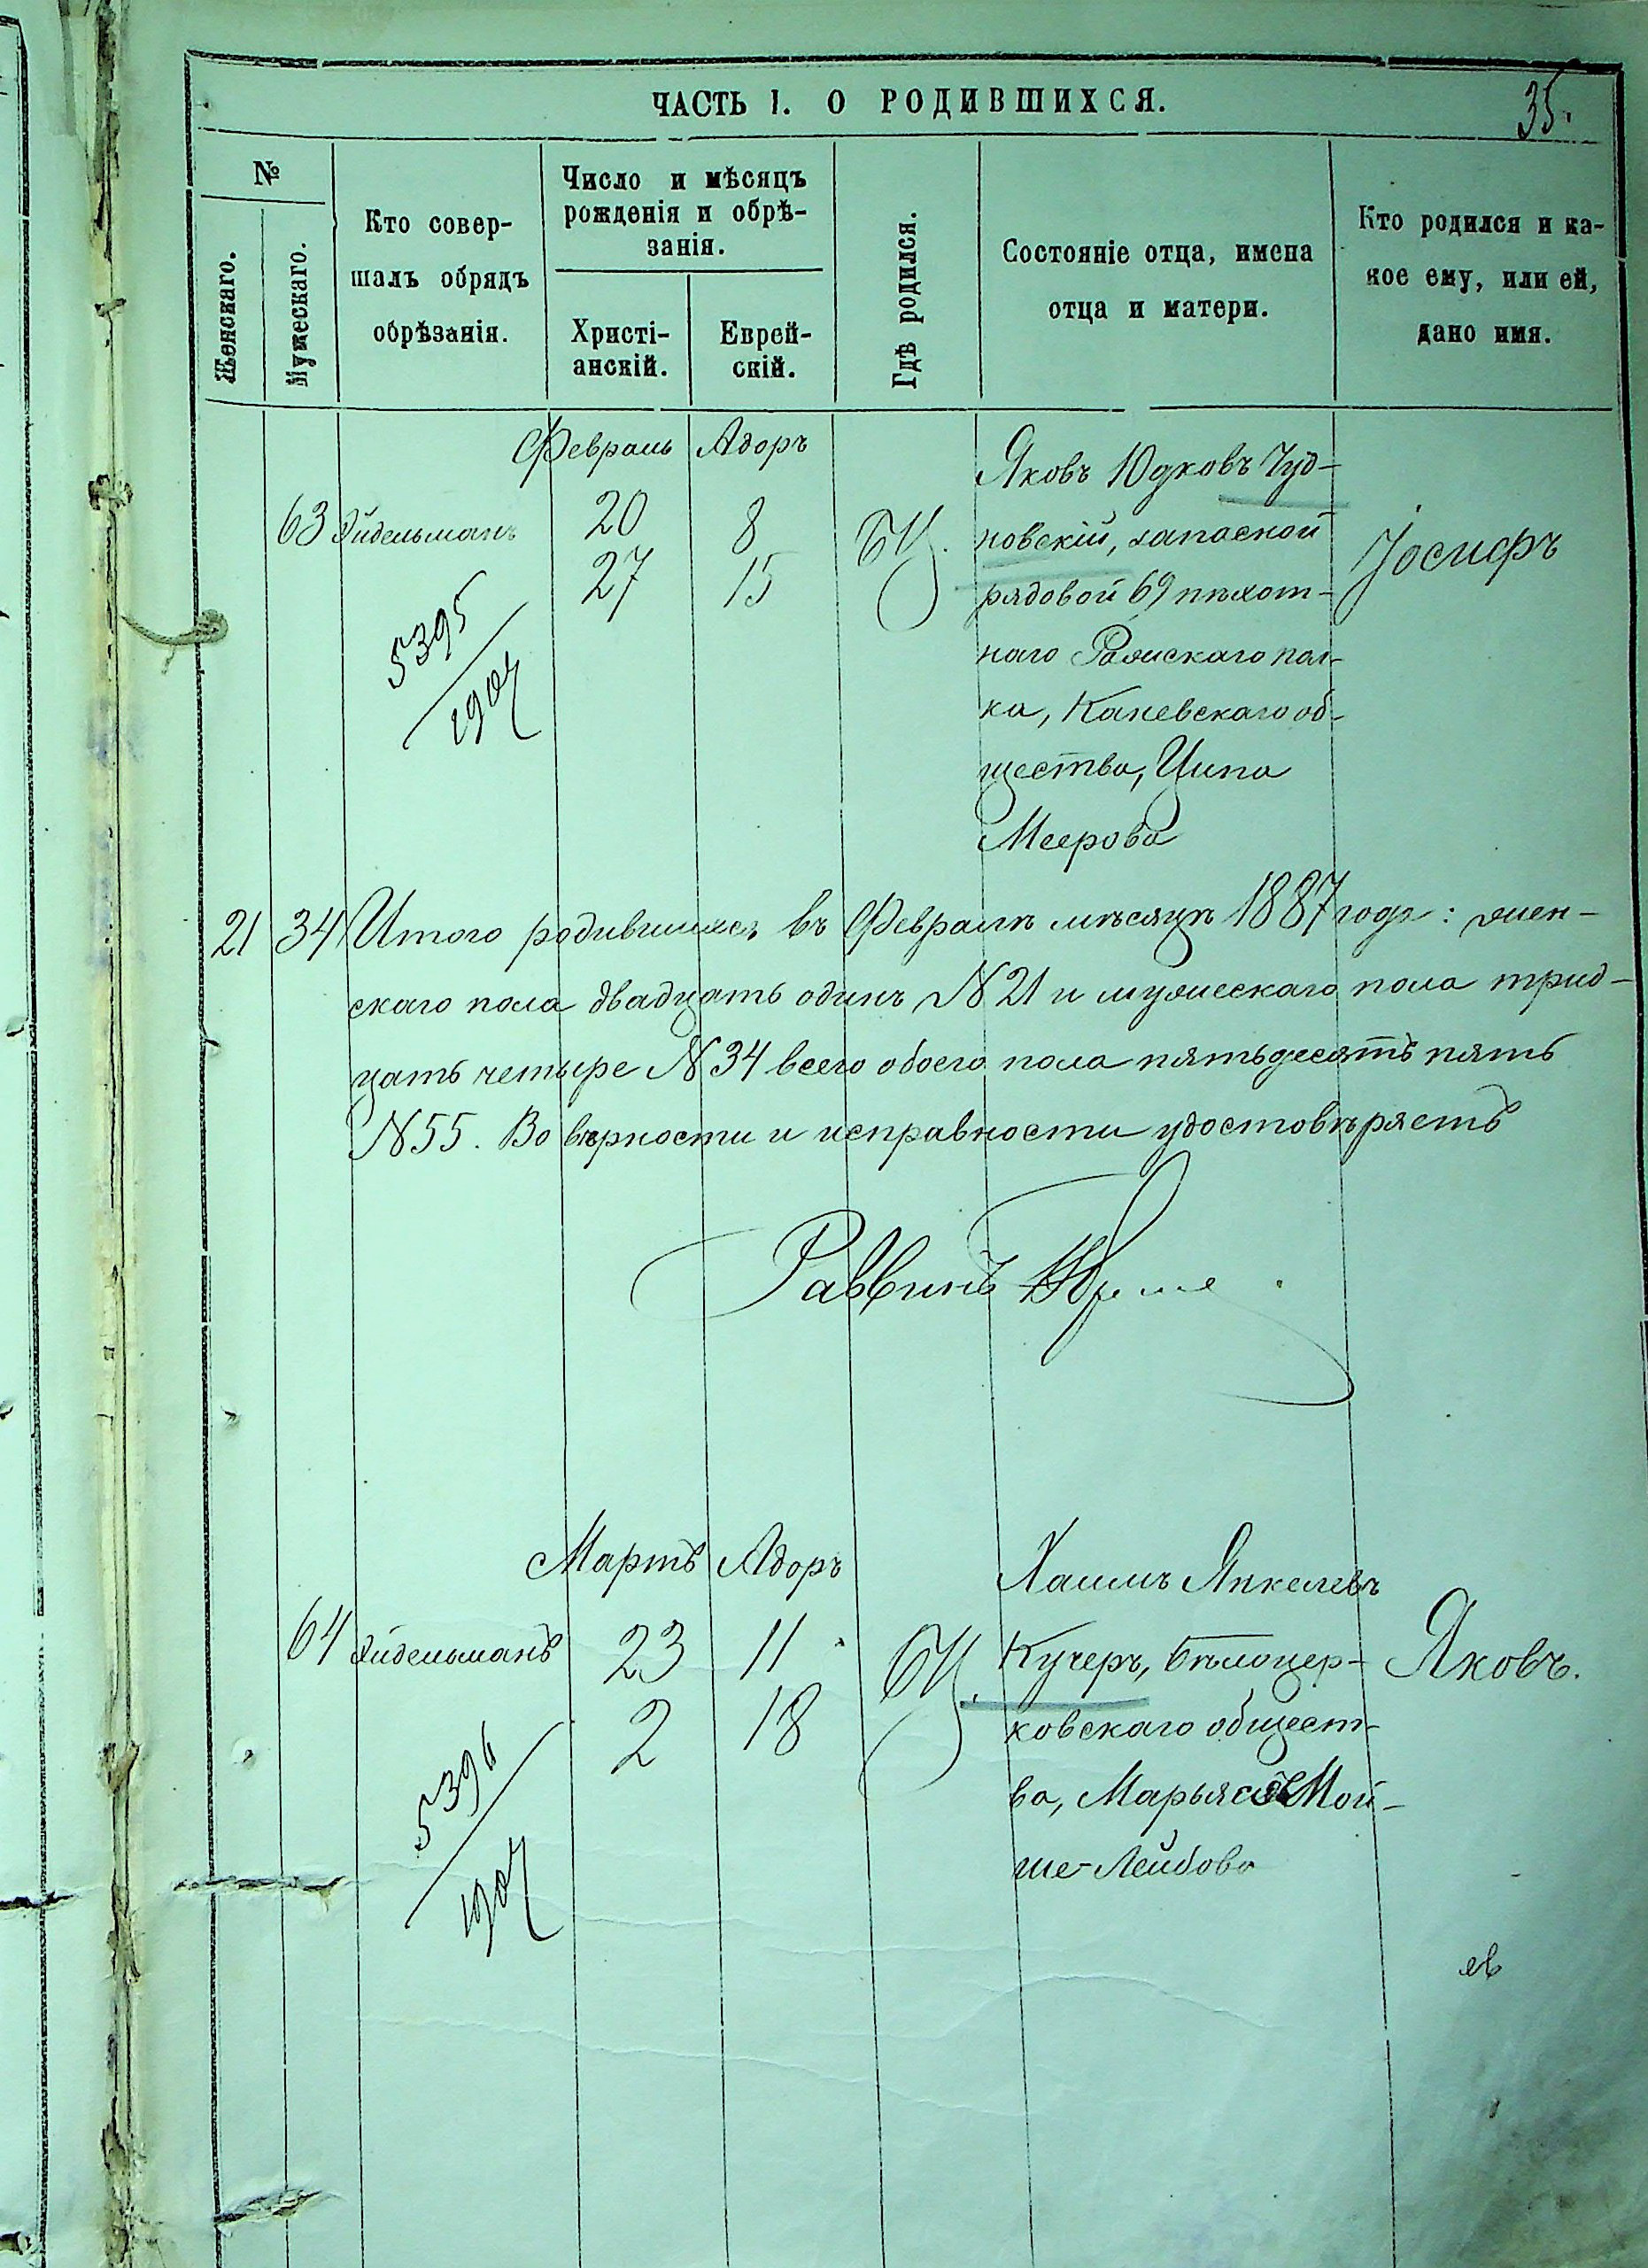 ЧАСТЬ I. О РОДИВШИХСЯ.
35.
№
Женскаго.
Мужескаго.
Кто совер-
шалъ обрядъ
обрѣзанія.
Число и мѣсяцъ
рожденія и обрѣ-
занія.
Христі-
анскій.
Еврей-
скій.
Гдѣ родился.
Состояніе отца, имена
отца и матери.
Кто родился и ка-
кое ему, или ей,
дано имя.
Февраль Адоръ
63 Эйдельманъ 20 8 БЦ.
27 15
5395
1907
Яковъ Юдковъ Чуд-
новскій, запасной
рядовой 69 пѣхот-
наго Ряжскаго пол-
ка, Каневскаго об-
щества, Ципа
Меерова
Іосифъ
21 34 Итого родившихся въ Февралѣ мѣсяцѣ 1887 года: жен-
скаго пола двадцать одинъ №21 и мужескаго пола трид-
цать четыре №34 всего обоего пола пятьдесятъ пять
№55. Во вѣрности и исправности удостовѣряетъ
Раввинъ
Мартъ Адоръ
64 Эйдельманъ 23 11 БЦ.
2 18
5396
1907
Хаимъ Янкелевъ
Кучеръ, Бѣлоцер-
ковскаго общест-
ва, Марьяся Мой-
ше-Лейбова
Яковъ.